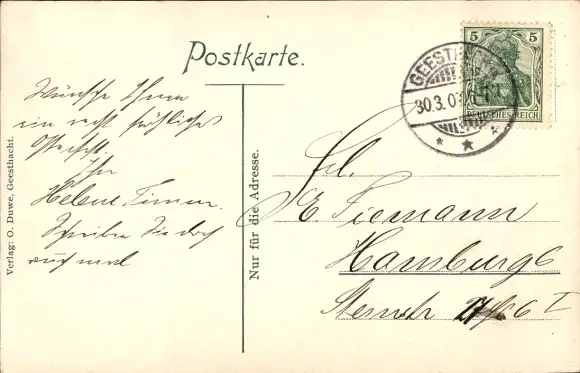 Postkarte.
Wünsche Ihnen
ein recht fröhliches
Osterfest.
Ihre
Helene Timm.
Schreiben Sie doch
auch mal
Verlag: O. Duwe, Geesthacht.
Nur für die Adresse.
5 5
DEUTSCHES REICH
GEESTH
30.3.07
Frl.
E. Tiemann
Hamburg 6
Sternstr I